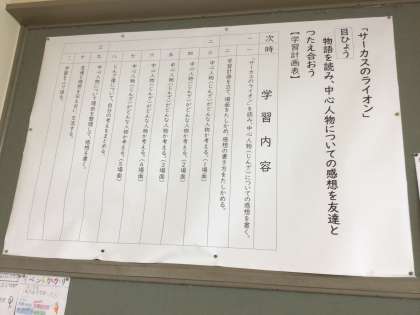 「サーカスのライオン」
目ひょう
物語を読み、中心人物についての感想を友達と
つたえ合おう
【学習計画表】
次 時 学習内容
一 一 「サーカスのライオン」を読み、中心人物(じんざ)についての感想を書く。
二 学習計画を立て、場面をたしかめ、感想の書き方をたしかめる。
二 三 中心人物(じんざ)がどんな人物か考える。(1場面)
四 中心人物(じんざ)がどんな人物か考える。(2場面)
五 中心人物(じんざ)がどんな人物か考える。(3場面)
六 中心人物(じんざ)がどんな人物か考える。(4場面)
七 中心人物(じんざ)がどんな人物か考える。(5場面)
八 じんざについて、自分の考えをまとめる。
三 九 中心人物について
感想を書く。
十 友達と感想を
交流する。
学習をふり返る。